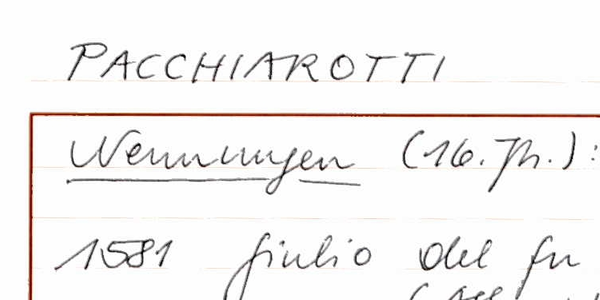 PACCHIAROTTI
Nennungen (16. Jh.):
1581 Giulio del fu